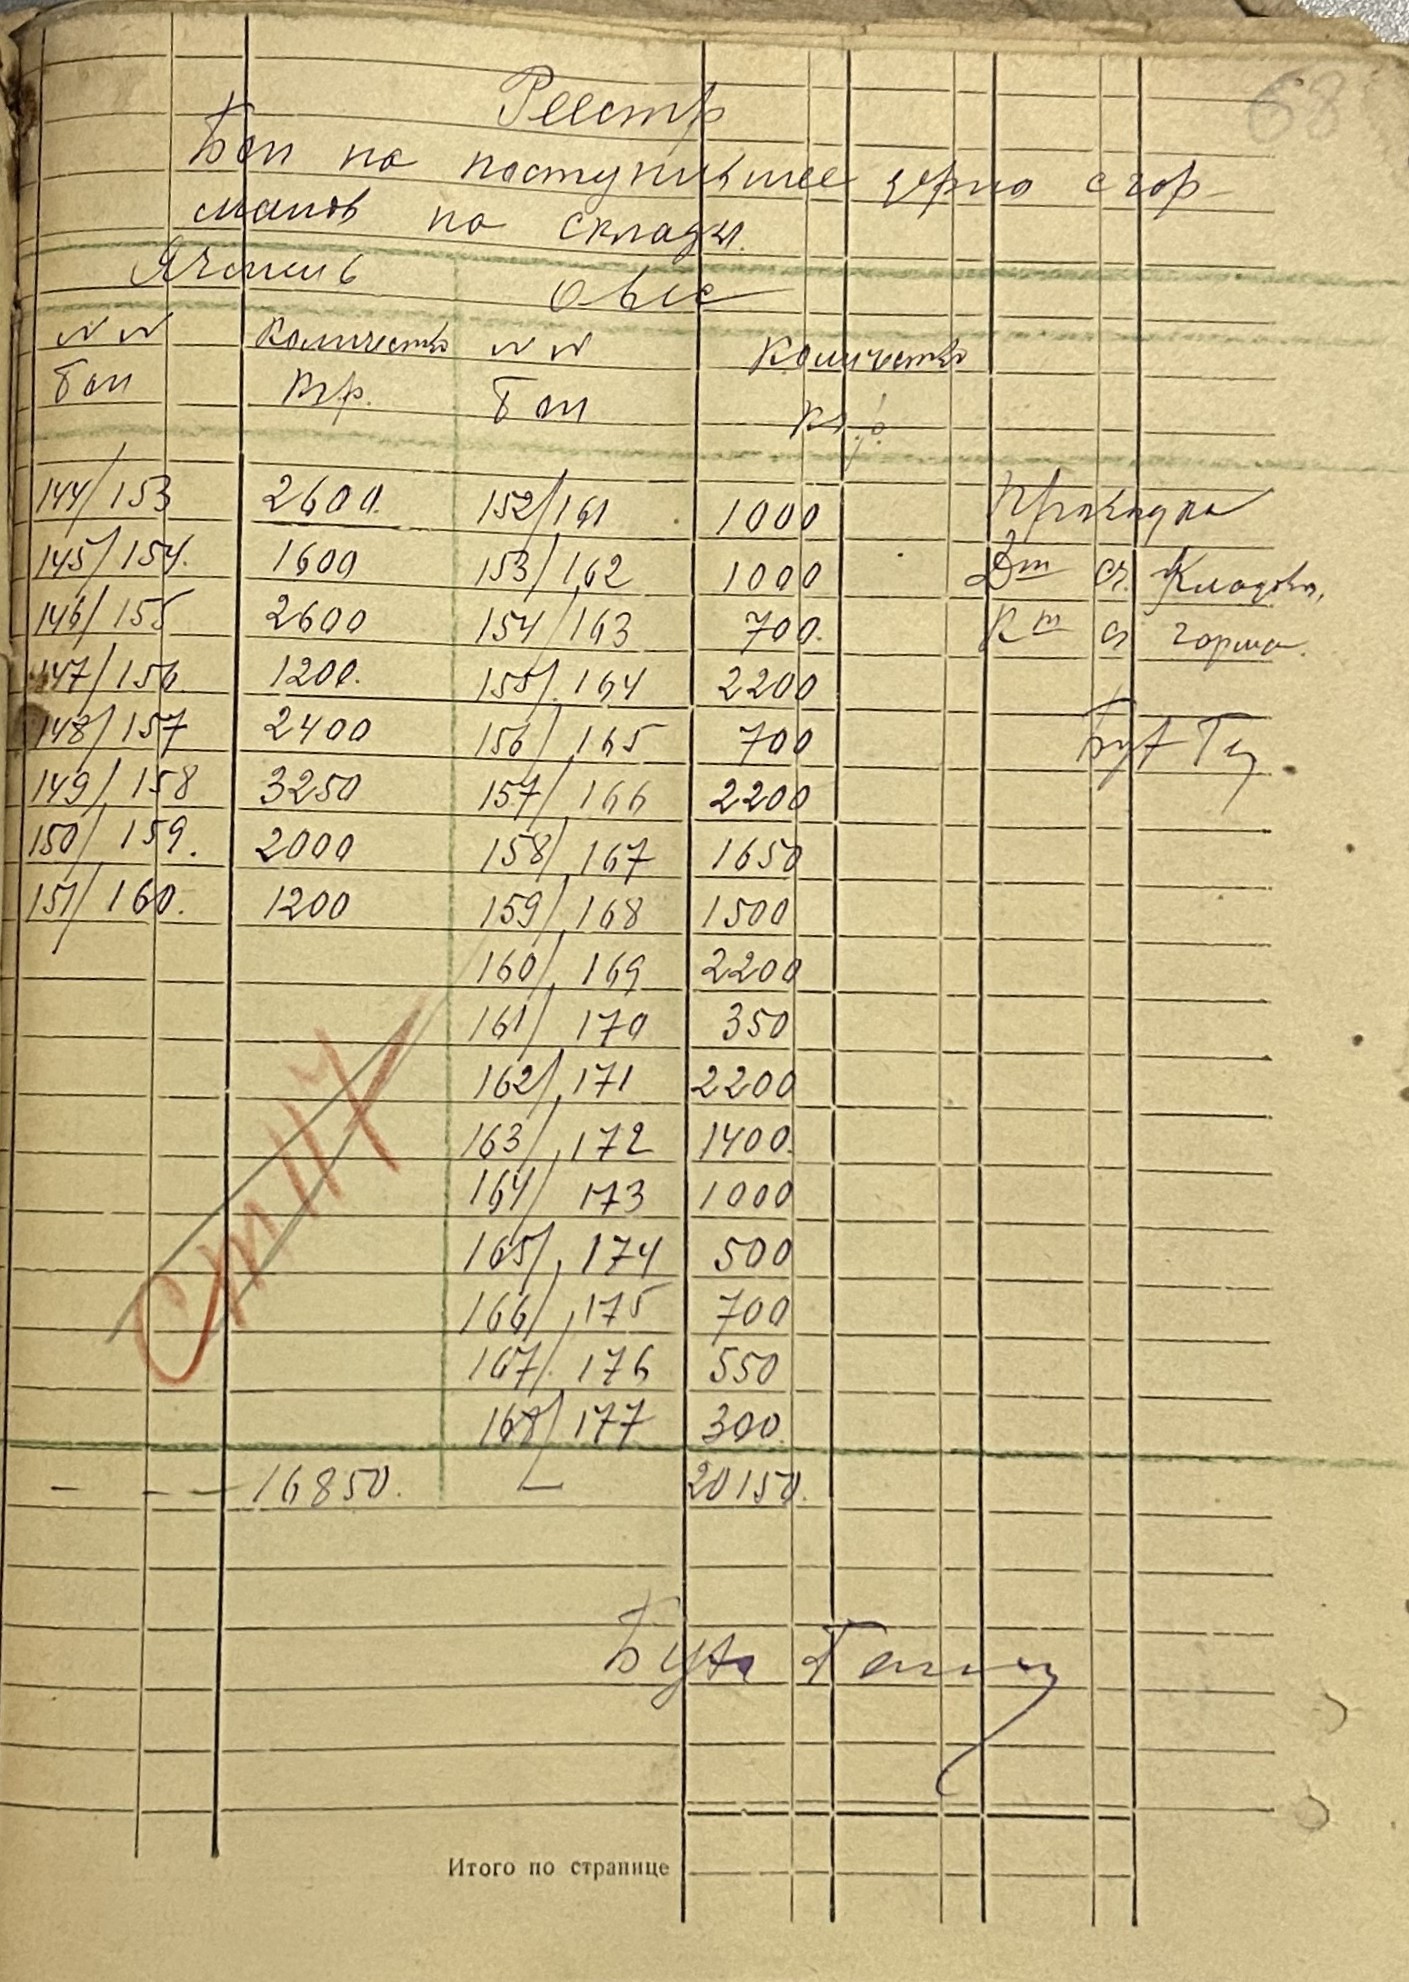 68
Реестр
Бон на поступившее зерно с гор-
манов на склады.
Ячмень Овес
№ № Количество № № Количество
Бон Кгр. Бон Кгр.
144/153 2600. 152/161 1000 Проводка
145/154. 1600 153/162 1000 Дт сч. Кладов.
146/155 2600 154/163 700. Кт сч горма.
147/156 1200. 155/164 2200
148/157 2400 156/165 700 Бух
149/158 3250 157/166 2200
150/159. 2000 158/167 1650
151/160. 1200 159/168 1500
160/169 2200
161/170 350
162/171 2200
163/172 1400.
164/173 1000
165/174 500
166/175 700
167/176 550
168/177 300.
Ст 117
– – – 16850. 20150.
Бух
Итого по странице